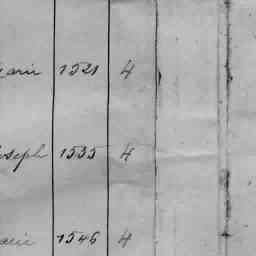 arie 1521 4
oseph 1535 4
arie 1546 4